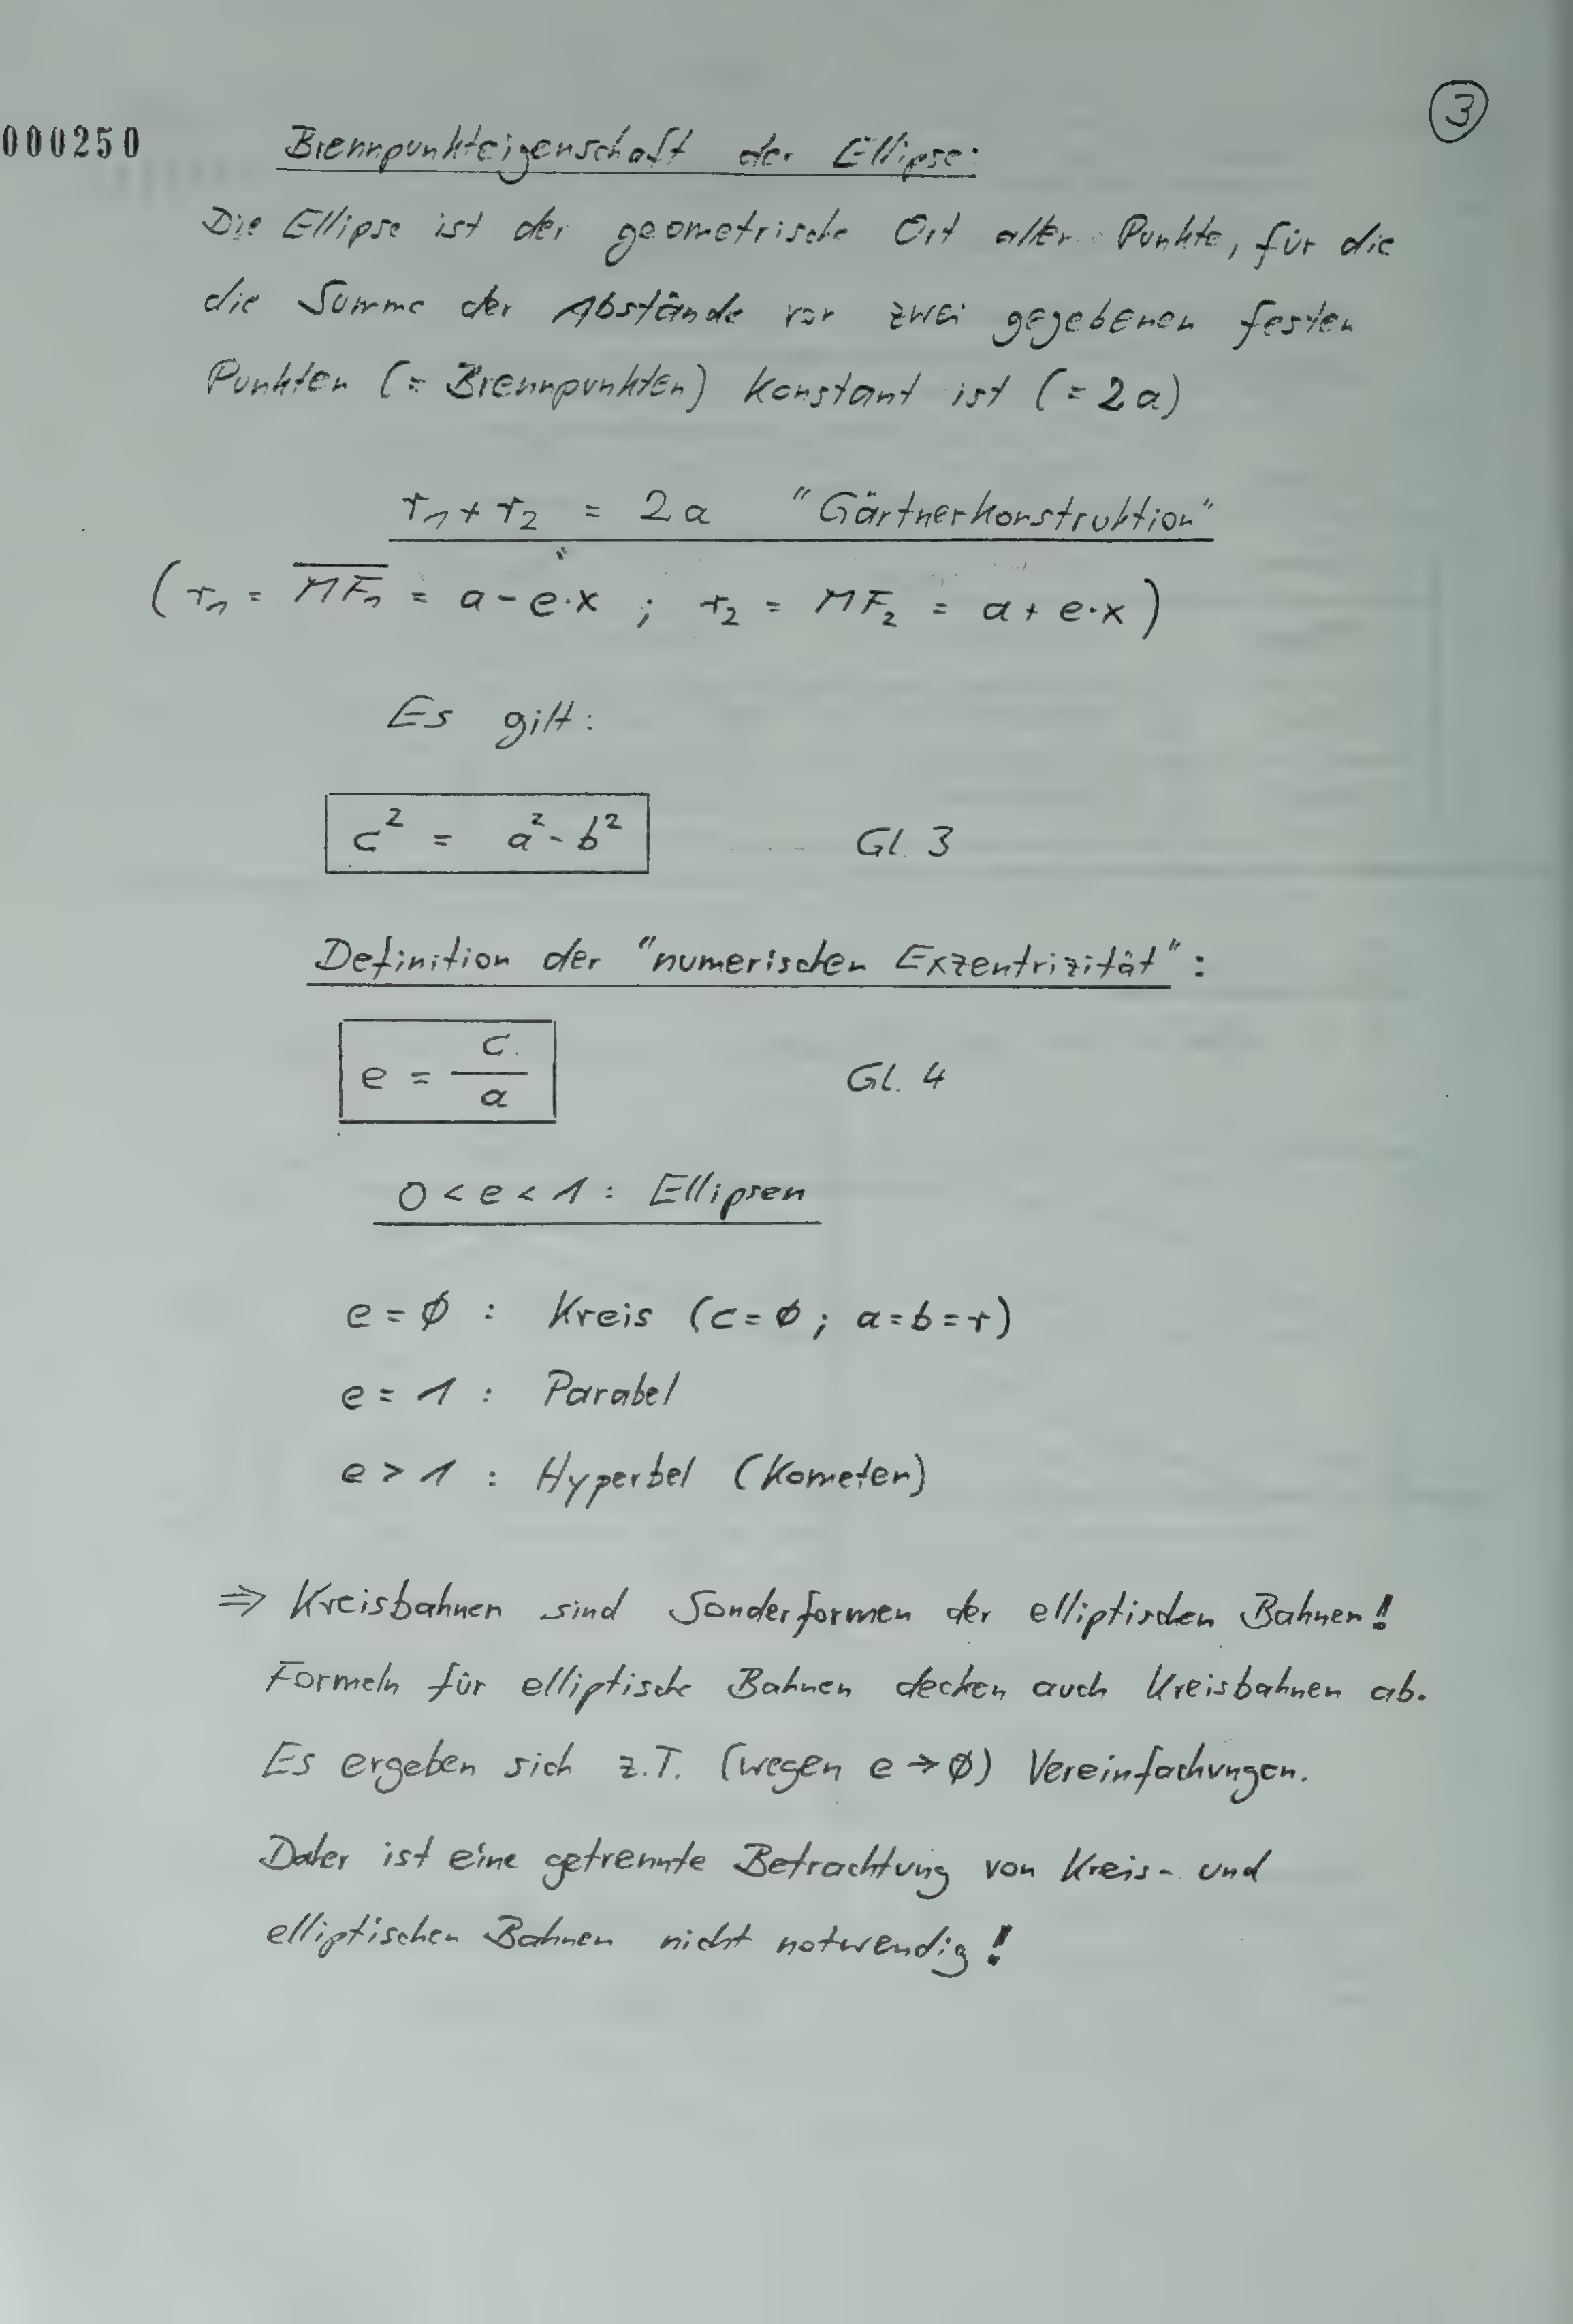 3
000250
Brennpunkteigenschaft der Ellipse:
Die Ellipse ist der geometrische Ort aller Punkte, für die
die Summe der Abstände von zwei gegebenen festen
Punkten (= Brennpunkten) konstant ist (= 2a)
r₁ + r₂ = 2a "Gärtnerkonstruktion"
(r₁ = M̅F̅₁ = a - e·x ; r₂ = MF₂ = a + e·x)
Es gilt:
c² = a² - b² Gl. 3
Definition der "numerischen Exzentrizität":
e = c/a Gl. 4
0 < e < 1 : Ellipsen
e = ∅ : Kreis (c = ∅ ; a = b = r)
e = 1 : Parabel
e > 1 : Hyperbel (Kometen)
⇒ Kreisbahnen sind Sonderformen der elliptischen Bahnen!
Formeln für elliptische Bahnen decken auch Kreisbahnen ab.
Es ergeben sich z.T. (wegen e → ∅) Vereinfachungen.
Daher ist eine getrennte Betrachtung von Kreis- und
elliptischen Bahnen nicht notwendig!